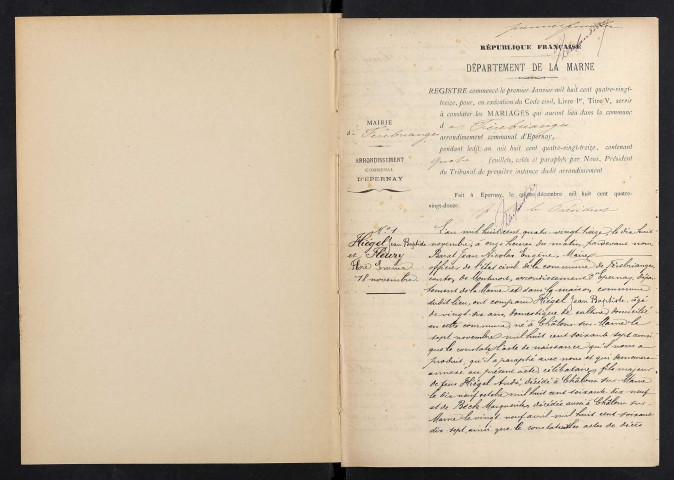 RÉPUBLIQUE FRANÇAISE
DÉPARTEMENT DE LA MARNE
REGISTRE commencé le premier Janvier mil huit cent quatre-vingt-
treize, pour, en exécution du Code civil, Livre Ier, Titre V, servir
à constater les MARIAGES qui auront lieu dans la commune
d e Férebrianges
arrondissement communal d'Epernay,
pendant ledit an mil huit cent quatre-vingt-treize, contenant
quatre feuillets, cotés et paraphés par Nous, Président
du Tribunal de première instance dudit arrondissement
Fait à Epernay, le décembre mil huit cent quatre-
vingt-douze.
le Président
MAIRIE
de Férebrianges
ARRONDISSEMENT
COMMUNAL
D'EPERNAY
No 1
Hiégel Jean Baptiste
et Fleury
Emma
18 novembre
L'an mil huit cent quatre-vingt-treize, le dix-huit
novembre, à onze heures du matin, pardevant nous
Jean Nicolas Eugène, Maire
officier de l'état civil de la commune de Férebrianges
canton de Montmort, arrondissement d'Epernay, dépar-
tement de la Marne et dans la maison commune
dudit lieu, ont comparu Hiégel Jean Baptiste, âgé
de vingt-six ans, domestique de culture, domicilié
en cette commune, né à Châlons-sur-Marne le
sept novembre mil huit cent soixante sept ainsi
que le constate l'acte de naissance qu'il nous a
produit, qu'il a paraphé avec nous et qui demeurera
annexé au présent acte, célibataire, fils majeur
de feu Hiégel André, décédé à Châlons-sur-Marne
le dix neuf octobre mil huit cent soixante dix neuf
et de Beck Marguerite, décédée aussi à Châlons-sur-
Marne le vingt neuf avril mil huit cent soixante
dix sept, ainsi que le constatent les actes de décès